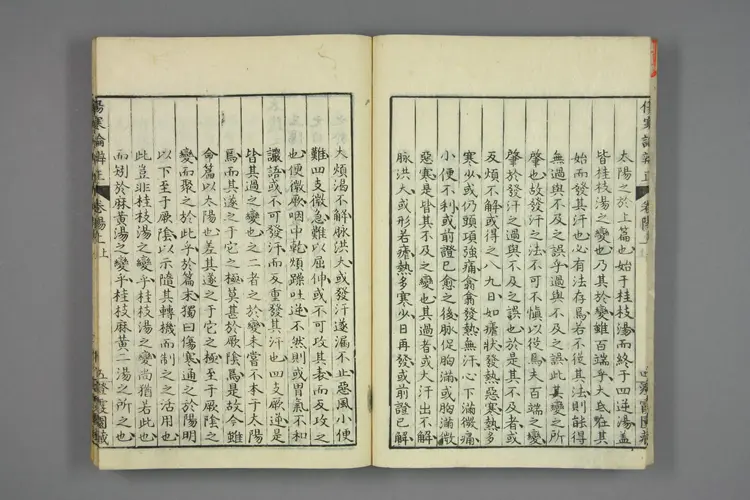 太陽之於上篇也始于桂枝湯而終于四逆湯蓋
皆桂枝湯之變也乃其於變雖百端乎大氐在其
始而發其汗也必有法存焉若不從其法則能得
無過與不及之誤乎過與不及之誤此其變之所
肇也故發汗之法不可不愼以從焉夫百端之變
肇於發汗之過與不及之誤也於是其不及者或
反煩不解或得之八九日如瘧狀發熱惡寒熱多
寒少或仍頭項強痛翕翕發熱無汗心下滿微痛
小便不利或前證已愈之後脉促胸滿或胸滿微
惡寒是皆其不及之變也其過者或大汗出不解
脉洪大或形若瘧熱多寒少日再發或前證已解
大煩渴不解脉洪大或發汗遂漏不止惡風小便
難四支微急難以屈伸或不可攻其表而反攻之
也便微厥咽中乾煩躁吐逆不然則或胃氣不和
讝語或不可發汗而反重發其汗也四支厥逆是
皆其過之變也之二者之於變未嘗不本于太陽
焉而其遂之于它之極莫甚於厥陰焉是故今雖
命篇以太陽也差其遂之于它之極至于厥陰之
變而聚之於此乎於篇末獨曰傷寒通之於陽明
以下至于厥陰以示隨其轉機而制之之活用也
此豈非桂枝湯之變乎桂枝湯之變尚猶若此也
而矧於麻黃湯之變乎桂枝麻黃二湯之所之也
傷寒論辨正
卷陽上上